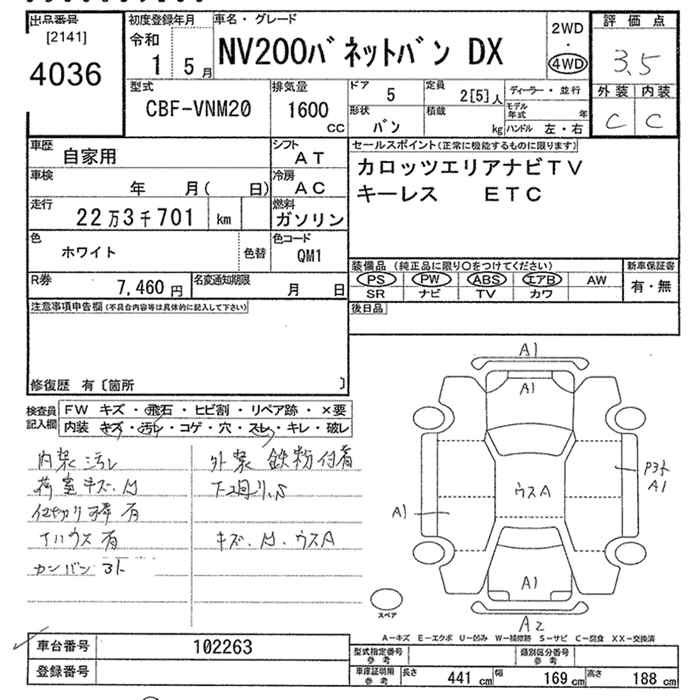 出品番号
[2141]
4036
初度登録年月
令和
1 5月
車名・グレード
NV200バネットバン DX
2WD
・
4WD
評価点
3.5
外装 内装
C C
型式
CBF-VNM20
排気量
1600
CC
ドア
5
定員
2[5]人
ディーラー・並行
形状
バン
積載
kg
モデル年式 年
ハンドル 左・右
車歴
自家用
シフト
AT
車検
年 月( 日)
冷房
AC
走行
22万3千701 km
燃料
ガソリン
色
ホワイト
色替
色コード
QM1
R券
7,460円
名変通知期限
月 日
セールスポイント(正常に機能するものに限ります)
カロッツエリアナビTV
キーレス ETC
装備品 (純正品に限り○をつけてください)
新車保証書
PS PW ABS エアB AW
有・無
SR ナビ TV カワ
後日品
注意事項申告欄(不具合内容等は具体的に記入して下さい)
修復歴 有〔箇所 〕
検査員記入欄
FW キズ・飛石・ヒビ割・リペア跡・×要
内装 キズ・汚レ・コゲ・穴・スレ・キレ・破レ
内装汚レ
荷室キズ、凹
仕切り棒 有
有
カンバン
外装 鉄粉付着
下廻り、S
キズ、凹、ウスA
A1
A1
ウスA
A1
A1
A1
A2
スペア
A-キズ E-エクボ U-凹み W-補修跡 S-サビ C-腐食 XX-交換済
車台番号
102263
登録番号
型式指定番号
参考
類別区分番号
参考
車庫証明用
参考
長さ 441 cm
幅 169 cm
高さ 188 cm